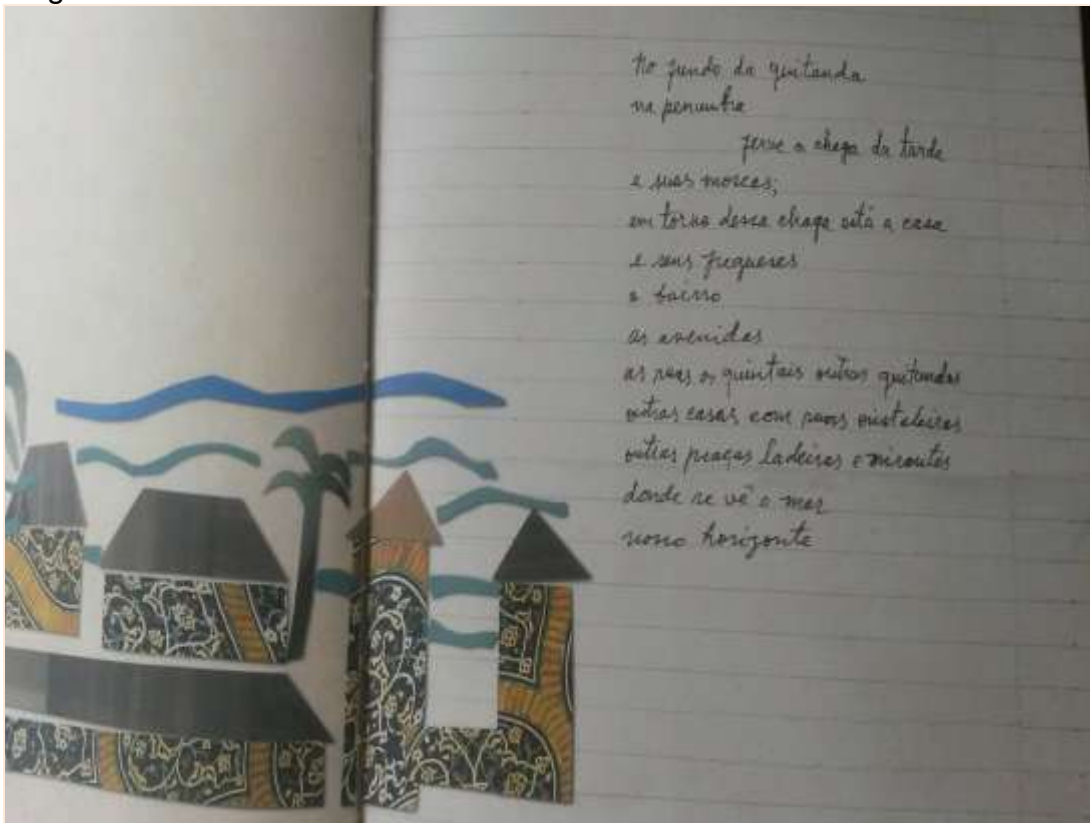 No fundo da quitanda
na penumbra
ferve a chaga da tarde
e suas moscas;
em torno dessa chaga está a casa
e seus fregueses
o bairro
as avenidas
as ruas os quintais outras quitandas
outras casas com suas cristaleiras
outras praças ladeiras e mirantes
donde se vê o mar
nosso horizonte